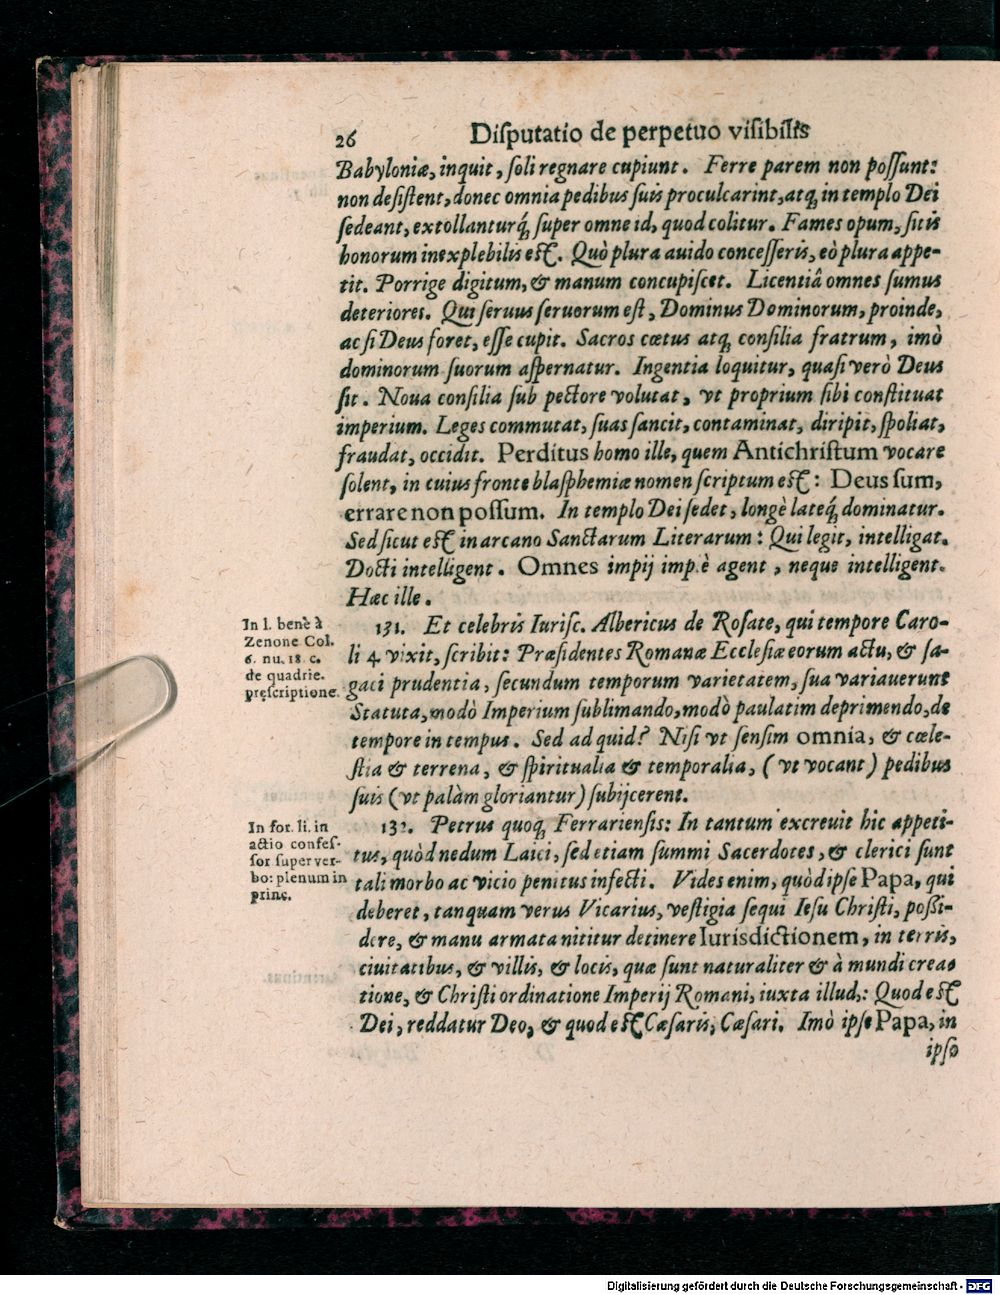 26 Diſputatio de perpetuo viſibilis
Babyloniæ, inquit, ſoli regnare cupiunt. Ferre parem non poſſunt:
non deſiſtent, donec omnia pedibus ſuis proculcarint, atq; in templo Dei
ſedeant, extollanturq́; ſuper omne id, quod colitur. Fames opum, ſitis
honorum inexplebilis eſt. Quò plura auido conceſſeris, eò plura appe-
tit. Porrige digitum, & manum concupiſcet. Licentiâ omnes ſumus
deteriores. Qui ſeruus ſeruorum eſt, Dominus Dominorum, proinde,
ac ſi Deus foret, eſſe cupit. Sacros cœtus atq; conſilia fratrum, imò
dominorum ſuorum aſpernatur. Ingentia loquitur, quaſi verò Deus
ſit. Noua conſilia ſub pectore volutat, vt proprium ſibi conſtituat
imperium. Leges commutat, ſuas ſancit, contaminat, diripit, ſpoliat,
fraudat, occidit. Perditus homo ille, quem Antichriſtum vocare
ſolent, in cuius fronte blaſphemiæ nomen ſcriptum eſt: Deus ſum,
errare non poſſum. In templo Dei ſedet, longè lateq́; dominatur.
Sed ſicut eſt in arcano Sanctarum Literarum: Qui legit, intelligat.
Docti intelligent. Omnes impij impiè agent, neque intelligent.
Hæc ille.
In l. benè à
Zenone Col.
6. nu. 18. c.
de quadrie.
preſcriptione.
131. Et celebris Iuriſc. Albericus de Roſate, qui tempore Caro-
li 4. vixit, ſcribit: Præſidentes Romanæ Eccleſiæ eorum actu, & ſa-
gaci prudentia, ſecundum temporum varietatem, ſua variauerunt
Statuta, modò Imperium ſublimando, modò paulatim deprimendo, de
tempore in tempus. Sed ad quid? Niſi vt ſenſim omnia, & cœle-
ſtia & terrena, & ſpiritualia & temporalia, (vt vocant) pedibus
ſuis (vt palàm gloriantur) ſubijcerent.
In for. li. in
actio confeſ-
ſor ſuper ver-
bo: plenum in
princ.
132. Petrus quoq; Ferrarienſis: In tantum excreuit hic appeti-
tus, quòd nedum Laici, ſed etiam ſummi Sacerdotes, & clerici ſunt
tali morbo ac vicio penitus infecti. Vides enim, quòd ipſe Papa, qui
deberet, tanquam verus Vicarius, veſtigia ſequi Ieſu Chriſti, poßi-
dere, & manu armata nititur detinere Iurisdictionem, in terris,
ciuitatibus, & villis, & locis, quæ ſunt naturaliter & à mundi crea-
tione, & Chriſti ordinatione Imperij Romani, iuxta illud,: Quod eſt
Dei, reddatur Deo, & quod eſt Cæſaris, Cæſari. Imò ipſe Papa, in
ipſo
Digitalisierung gefördert durch die Deutsche Forschungsgemeinschaft - DFG